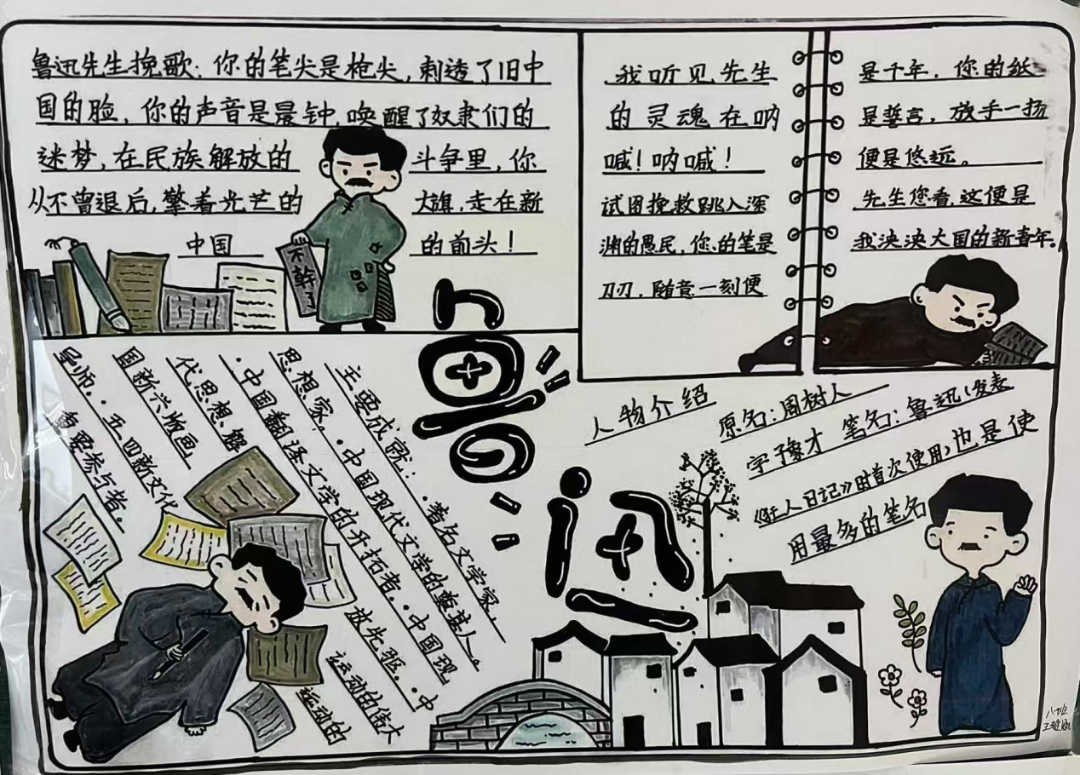 鲁迅先生挽歌：你的笔尖是枪尖，刺透了旧中
国的脸，你的声音是晨钟，唤醒了奴隶们的
迷梦，在民族解放的 斗争里，你
从不曾退后，擎着光芒的 大旗，走在新
中国 的前头！
不幹了
我听见先生
的灵魂在呐
喊！呐喊！
试图挽救跳入深
渊的愚民，你的笔是
刀刃，随意一刻便
是千年，你的纸
是誓言，放手一扬
便是悠远。
先生您看，这便是
我泱泱大国的新青年。
鲁迅
主要成就：·著名文学家、
思想家，·中国现代文学的奠基人。
·中国翻译文学的开拓者。·中国现
代思想解 放先驱。·中
国新兴版画 运动的伟大
导师。·五四新文化 运动的
重要参与者。
人物介绍
原名：周树人
字豫才 笔名：鲁迅（发表
《狂人日记》时首次使用）也是使
用最多的笔名